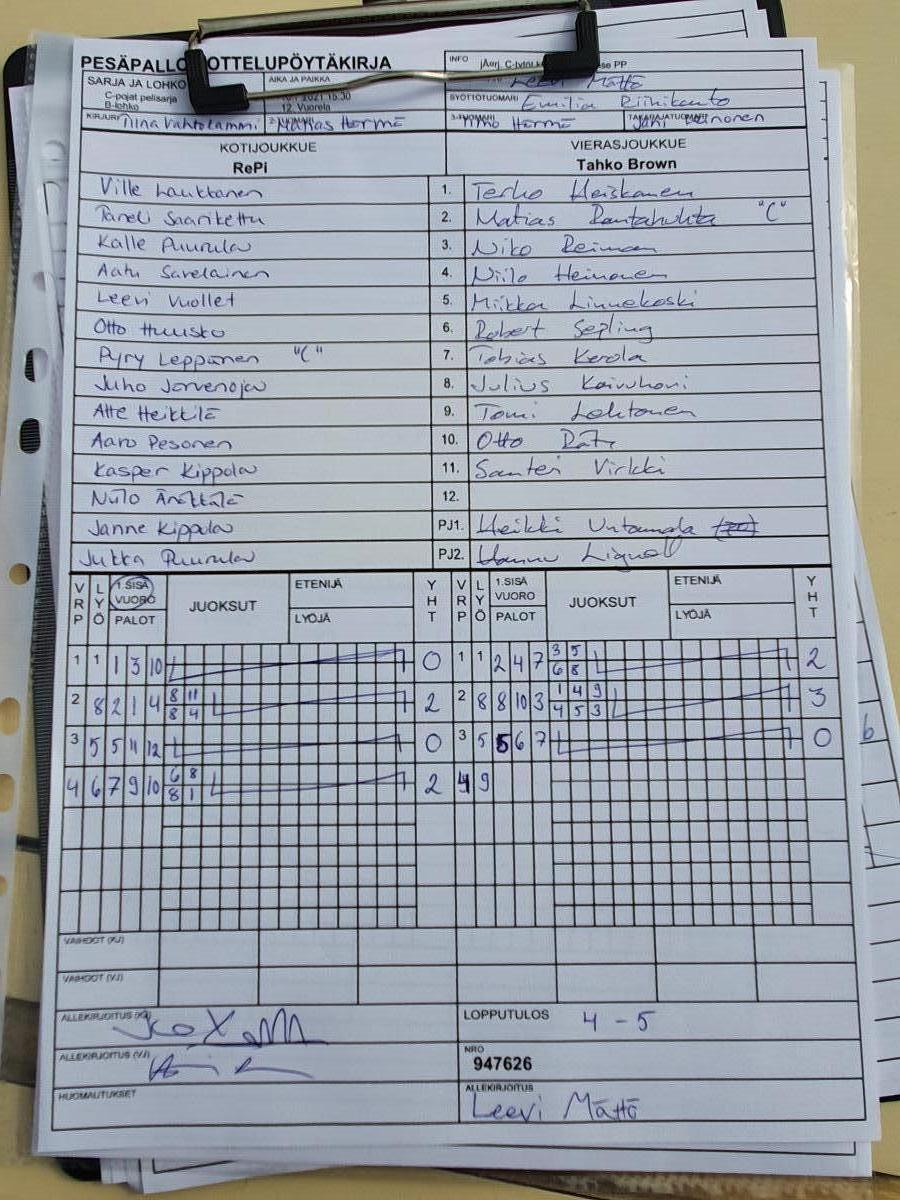 PESÄPALLO OTTELUPÖYTÄKIRJA
SARJA JA LOHKO
C-pojat pelisarja
B-lohko
AIKA JA PAIKKA
2021 15:30
12. Vuorela
INFO
Leevi Mättö
SYÖTTÖTUOMARI Emilia Riihikanto
KIRJURI Tiina Vahtolammi
2-TUOMARI Matias Hormä
3-TUOMARI Timo Hormä
TAKARAJATUOMARI Jani
KOTIJOUKKUE
RePi
VIERASJOUKKUE
Tahko Brown
Ville Laukkanen 1. Terho Heiskanen
Taneli Saarikettu 2. Matias Rantahuhta "C"
Kalle Puurula 3. Niko Reiman
Aatu Savelainen 4. Niilo Heinonen
Leevi Vuollet 5. Miikka Linnekoski
Otto Huusko 6. Robert Sepling
Pyry Leppänen "C" 7. Tobias Kerola
Juho Järvenoja 8. Julius Koivuhovi
Atte Heikkilä 9. Tomi Lehtonen
Aaro Pesonen 10. Otto
Kasper Kippola 11. Santeri Virkki
Niilo Änäkkälä 12.
Janne Kippola PJ1. Heikki Untamala
Jukka Puurula PJ2. Hannu Lignell
VRP LYÖ 1.SISÄ VUORO PALOT JUOKSUT ETENIJÄ LYÖJÄ YHT VRP LYÖ 1.SISÄ VUORO PALOT JUOKSUT ETENIJÄ LYÖJÄ YHT
3 5
1 1 1 3 10 0 1 1 2 4 7 2
6 8
8 11 1 4 9
2 8 2 1 4 2 2 8 8 10 3 3
8 4 4 5 3
3 5 5 11 12 0 3 5 5 6 7 0
6 8
4 6 7 9 10 2 4 9
8 1
VAIHDOT (KJ)
VAIHDOT (VJ)
ALLEKIRJOITUS (KJ)
LOPPUTULOS 4 - 5
ALLEKIRJOITUS (VJ)
NRO
947626
HUOMAUTUKSET
ALLEKIRJOITUS
Leevi Mättö